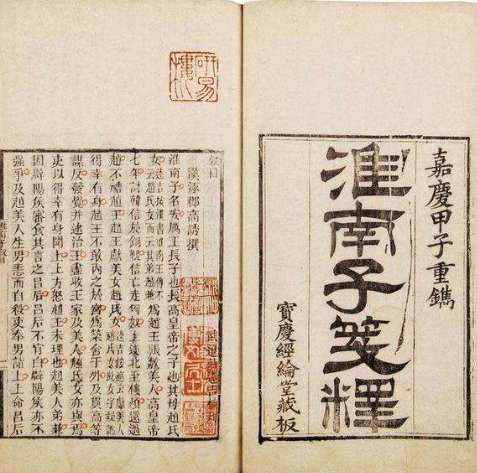 嘉慶甲子重鐫
淮南子箋釋
寶慶經綸堂藏板
敘目
漢涿郡高誘撰
淮南子名安厲王長子也長高皇帝之子也其母趙氏
女爲趙王張敖美人高皇帝
七年討韓信於銅鞮信亡走匈奴上遂北至樓煩還過
趙不禮趙王趙王獻美女趙氏女
得幸有身趙王不敢內之於宮爲築舍于外及貫高等
謀反發覺并逮治王盡收王家及美人趙氏女亦與焉
吏以得幸有身聞上上方怒趙王未理也趙美人弟兼
因辟陽侯審食其言之呂后呂后不肯白辟陽侯亦不
強爭及趙美人生男恚而自殺吏奉男詣上上命呂后